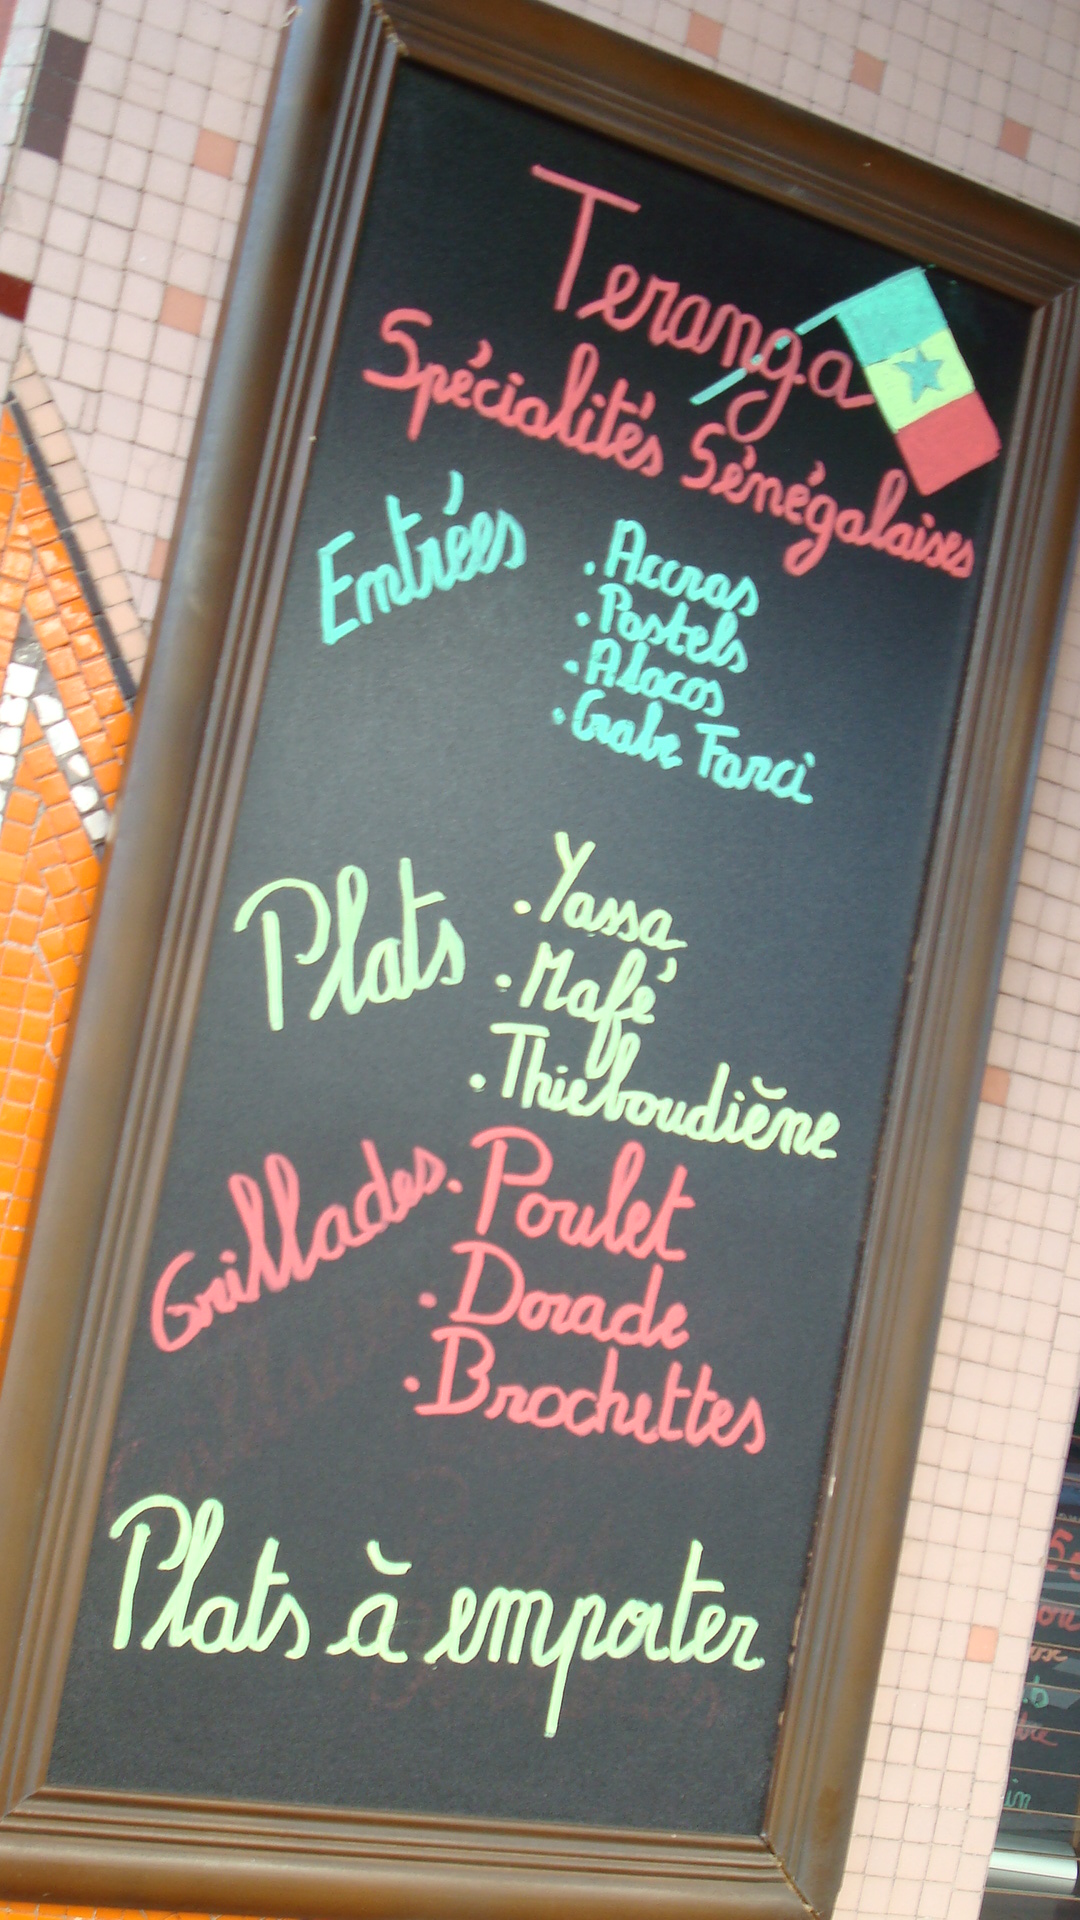 Teranga
Spécialités Sénégalaises
Entrées
. Accras
. Pastels
. Alocos
. Crabe Farci
Plats
. Yassa
. Mafé
. Thieboudiène
Grillades
. Poulet
. Dorade
. Brochettes
Plats à emporter